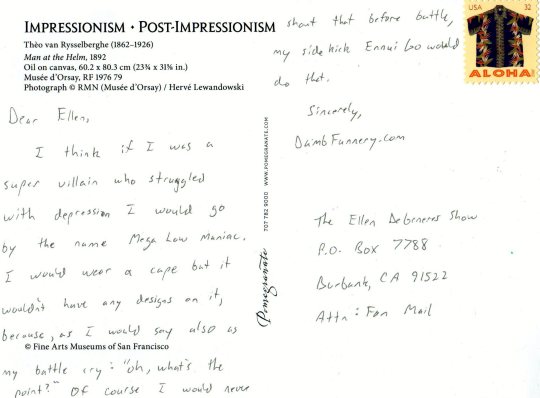 IMPRESSIONISM • POST-IMPRESSIONISM
Théo van Rysselberghe (1862–1926)
Man at the Helm, 1892
Oil on canvas, 60.2 x 80.3 cm (23¾ x 31⅝ in.)
Musée d'Orsay, RF 1976 79
Photograph © RMN (Musée d'Orsay) / Hervé Lewandowski
Dear Ellen,
I think if I was a
super villain who struggled
with depression I would go
by the name Mega Low Maniac.
I would wear a cape but it
wouldn't have any designs on it,
because, as I would say also as
© Fine Arts Museums of San Francisco
my battle cry: "oh, what's the
point?" Of course I would never
shout that before battle,
my side kick Ennui Loo would
do that.
Sincerely,
DumbFunnery.com
Pomegranate
707 782 9000 WWW.POMEGRANATE.COM
USA 32
ALOHA
The Ellen DeGeneres Show
P.O. Box 7788
Burbank, CA 91522
Attn: Fan Mail